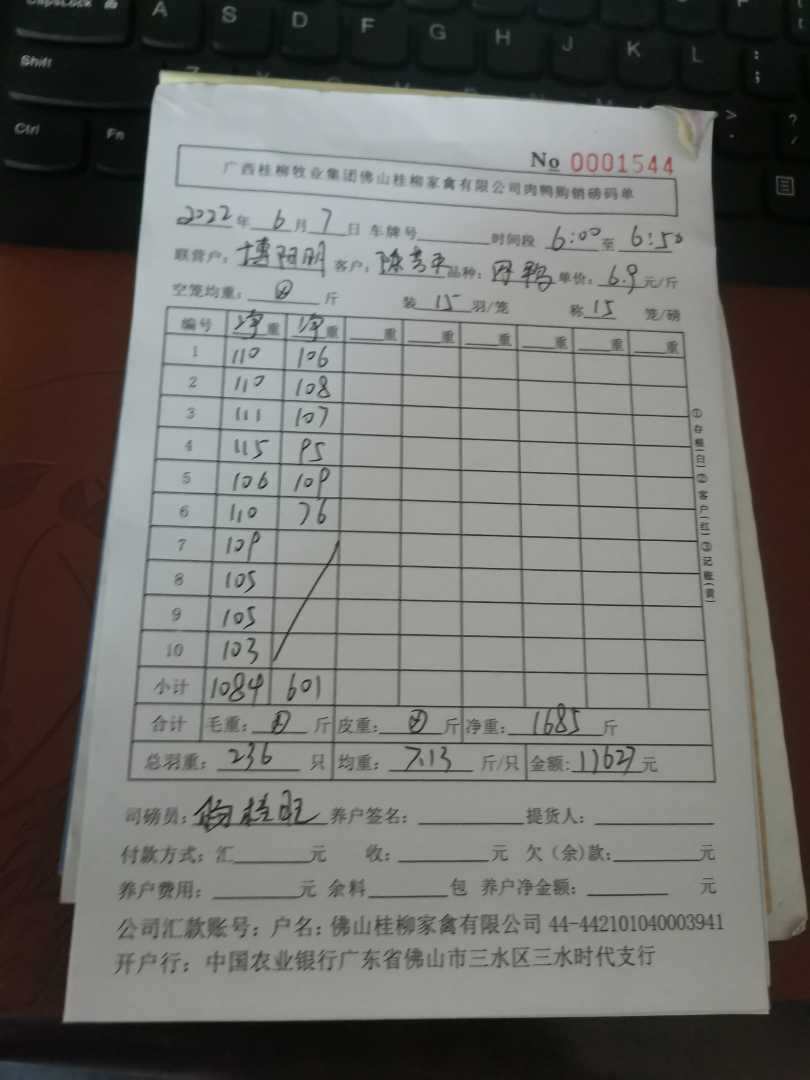 CapsLock A S D F G H J K L : ;
Shift
Ctrl Fn
No 0001544
广西桂柳牧业集团佛山桂柳家禽有限公司肉鸭购销磅码单
2022年6月7日 车牌号 时间段 6:00至6:50
联营户: 博阿明 客户: 陈 平 品种: 鸭 单价: 6.9元/斤
空笼均重: 斤 装15羽/笼 称15笼/磅
编号 净重 净重 重 重 重 重 重 重
1 110 106
2 110 108
3 111 107
4 115 95
5 106 109
6 110 76
7 109
8 105
9 105
10 103
小计 1084 601
合计 毛重: 斤 皮重: 斤 净重: 1685斤
总羽重: 236只 均重: 7.13斤/只 金额: 11627元
司磅员: 杨桂旺 养户签名: 提货人:
付款方式: 汇 元 收: 元 欠(余)款: 元
养户费用: 元 余料 包 养户净金额: 元
公司汇款账号: 户名: 佛山桂柳家禽有限公司 44-442101040003941
开户行: 中国农业银行广东省佛山市三水区三水时代支行
①存根(白)②客户(红)③记账(黄)